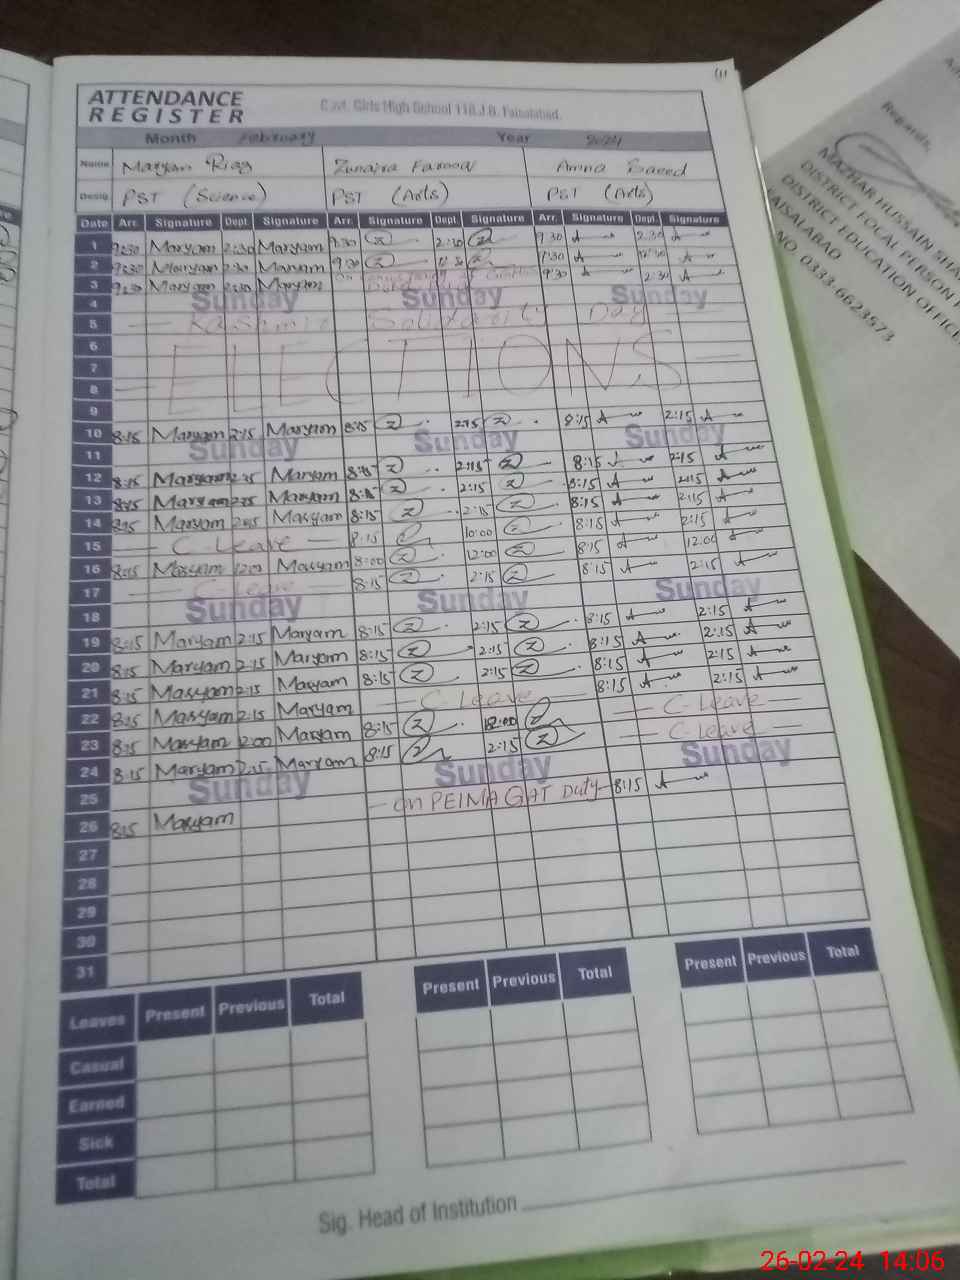 ATTENDANCE
REGISTER
Govt. Girls High School 118.J.B. Faisalabad.
Month February Year 2024
Name Maryam Riaz Zunaira Farooq Amna Saeed
Desig. PST (Science) PST (Arts) PST (Arts)
Date Arr. Signature Dept. Signature Arr. Signature Dept. Signature Arr. Signature Dept. Signature
1 9:30 Maryam 2:30 Maryam 9:30 2:30 9:30 A 2:30 A
2 9:30 Maryam 2:30 Maryam 9:30 9:30 A A
3 9:30 Maryam 2:30 Maryam On 9:30 A 2:30 A
4 Sunday Sunday Sunday
5 Kashmir Solidarity Day
6
7 ELECTIONS
8
9
10 8:15 Maryam 2:15 Maryam 8:15 2:15 8:15 A 2:15 A
11 Sunday Sunday Sunday
12 8:15 Maryam 2:15 Maryam 8:15 2:15 8:15 A 2:15 A
13 8:15 Maryam 2:15 Maryam 8:15 2:15 8:15 A 2:15 A
14 8:15 Maryam 2:15 Maryam 8:15 2:15 8:15 A 2:15 A
15 C-Leave 8:15 10:00 8:15 A 2:15 A
16 8:15 Maryam 12:00 Maryam 8:00 12:00 8:15 A 12:00 A
17 C-Leave 8:15 2:15 8:15 A 2:15 A
18 Sunday Sunday Sunday
19 8:15 Maryam 2:15 Maryam 8:15 2:15 8:15 A 2:15 A
20 8:15 Maryam 2:15 Maryam 8:15 2:15 8:15 A 2:15 A
21 8:15 Maryam 2:15 Maryam 8:15 2:15 8:15 A 2:15 A
22 8:15 Maryam 2:15 Maryam C-Leave 8:15 A 2:15 A
23 8:15 Maryam 12:00 Maryam 8:15 12:00 C-Leave
24 8:15 Maryam 2:15 Maryam 8:15 2:15 C-Leave
25 Sunday Sunday Sunday
26 8:15 Maryam On PEIMA GAT Duty 8:15 A
27
28
29
30
31
Leaves Present Previous Total Present Previous Total Present Previous Total
Casual
Earned
Sick
Total
Sig. Head of Institution
Regards,
MAZHAR HUSSAIN
DISTRICT FOCAL PERSON
DISTRICT EDUCATION OFFICE
FAISALABAD
NO 0333-6623573
26-02-24 14:06